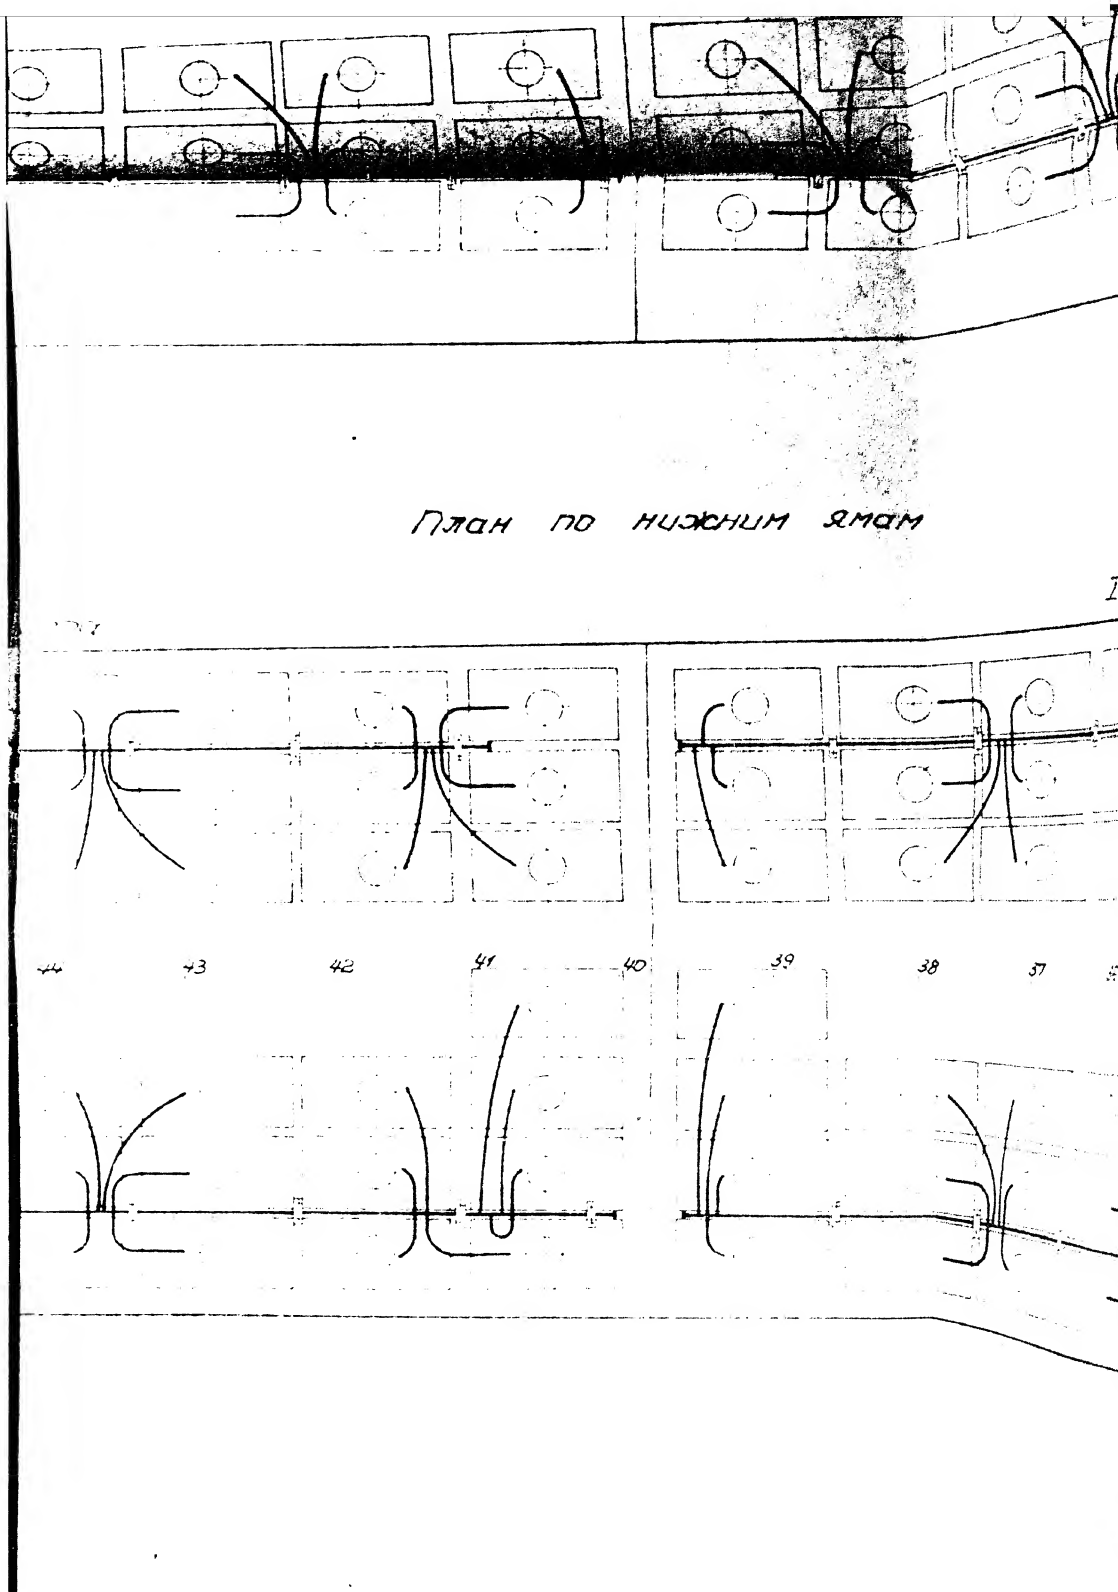 План по нижним ямам
44 43 42 41 40 39 38 37